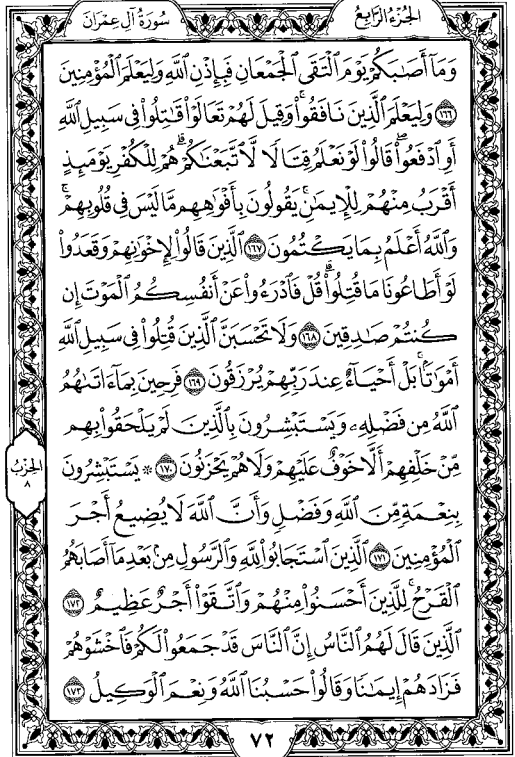 سُورَةُ آلِ عِمْرَانَ
الجُزْءُ الرَّابِعُ
وَمَآ أَصَٰبَكُمْ يَوْمَ ٱلْتَقَى ٱلْجَمْعَانِ فَبِإِذْنِ ٱللَّهِ وَلِيَعْلَمَ ٱلْمُؤْمِنِينَ
١٦٦ وَلِيَعْلَمَ ٱلَّذِينَ نَافَقُوا۟ ۚ وَقِيلَ لَهُمْ تَعَالَوْا۟ قَٰتِلُوا۟ فِى سَبِيلِ ٱللَّهِ
أَوِ ٱدْفَعُوا۟ ۖ قَالُوا۟ لَوْ نَعْلَمُ قِتَالًا لَّٱتَّبَعْنَٰكُمْ ۗ هُمْ لِلْكُفْرِ يَوْمَئِذٍ
أَقْرَبُ مِنْهُمْ لِلْإِيمَٰنِ ۚ يَقُولُونَ بِأَفْوَٰهِهِم مَّا لَيْسَ فِى قُلُوبِهِمْ ۗ
وَٱللَّهُ أَعْلَمُ بِمَا يَكْتُمُونَ ١٦٧ ٱلَّذِينَ قَالُوا۟ لِإِخْوَٰنِهِمْ وَقَعَدُوا۟
لَوْ أَطَاعُونَا مَا قُتِلُوا۟ ۗ قُلْ فَٱدْرَءُوا۟ عَنْ أَنفُسِكُمُ ٱلْمَوْتَ إِن
كُنتُمْ صَٰدِقِينَ ١٦٨ وَلَا تَحْسَبَنَّ ٱلَّذِينَ قُتِلُوا۟ فِى سَبِيلِ ٱللَّهِ
أَمْوَٰتًۢا ۚ بَلْ أَحْيَآءٌ عِندَ رَبِّهِمْ يُرْزَقُونَ ١٦٩ فَرِحِينَ بِمَآ ءَاتَىٰهُمُ
ٱللَّهُ مِن فَضْلِهِۦ وَيَسْتَبْشِرُونَ بِٱلَّذِينَ لَمْ يَلْحَقُوا۟ بِهِم
مِّنْ خَلْفِهِمْ أَلَّا خَوْفٌ عَلَيْهِمْ وَلَا هُمْ يَحْزَنُونَ ١٧٠ * يَسْتَبْشِرُونَ
بِنِعْمَةٍ مِّنَ ٱللَّهِ وَفَضْلٍ وَأَنَّ ٱللَّهَ لَا يُضِيعُ أَجْرَ
ٱلْمُؤْمِنِينَ ١٧١ ٱلَّذِينَ ٱسْتَجَابُوا۟ لِلَّهِ وَٱلرَّسُولِ مِنۢ بَعْدِ مَآ أَصَابَهُمُ
ٱلْقَرْحُ ۚ لِلَّذِينَ أَحْسَنُوا۟ مِنْهُمْ وَٱتَّقَوْا۟ أَجْرٌ عَظِيمٌ ١٧٢
ٱلَّذِينَ قَالَ لَهُمُ ٱلنَّاسُ إِنَّ ٱلنَّاسَ قَدْ جَمَعُوا۟ لَكُمْ فَٱخْشَوْهُمْ
فَزَادَهُمْ إِيمَٰنًا وَقَالُوا۟ حَسْبُنَا ٱللَّهُ وَنِعْمَ ٱلْوَكِيلُ ١٧٣
الحِزْبُ
٨
٧٢